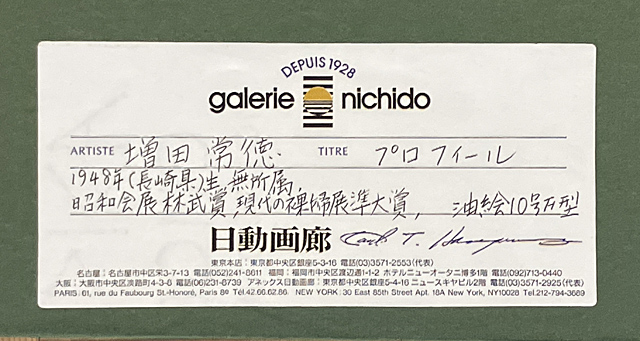 DEPUIS 1928
galerie nichido
ARTISTE 増田 常徳. TITRE プロフィール
1948年(長崎県)生,無所属,
昭和会展林武賞,現代の裸婦展準大賞, 油絵10号F型
日動画廊
東京本店:東京都中央区銀座5-3-16 電話(03)3571-2553(代表)
名古屋:名古屋市中区栄3-7-13 電話(052)241-8611 福岡:福岡市中央区渡辺通1-1-2 ホテルニューオータニ博多1階 電話(092)713-0440
大阪:大阪市中央区淡路町4-3-6 電話(06)231-8739 アネックス日動画廊:東京都中央区銀座5-4-16 ニュースキヤビル2階 電話(03)3571-2925(代表)
PARIS:61, rue du Faubourg St.-Honoré, Paris 8e Tél.42.66.62.86. NEW YORK:30 East 85th Street Apt. 18A New York, NY10028 Tel.212-794-3689